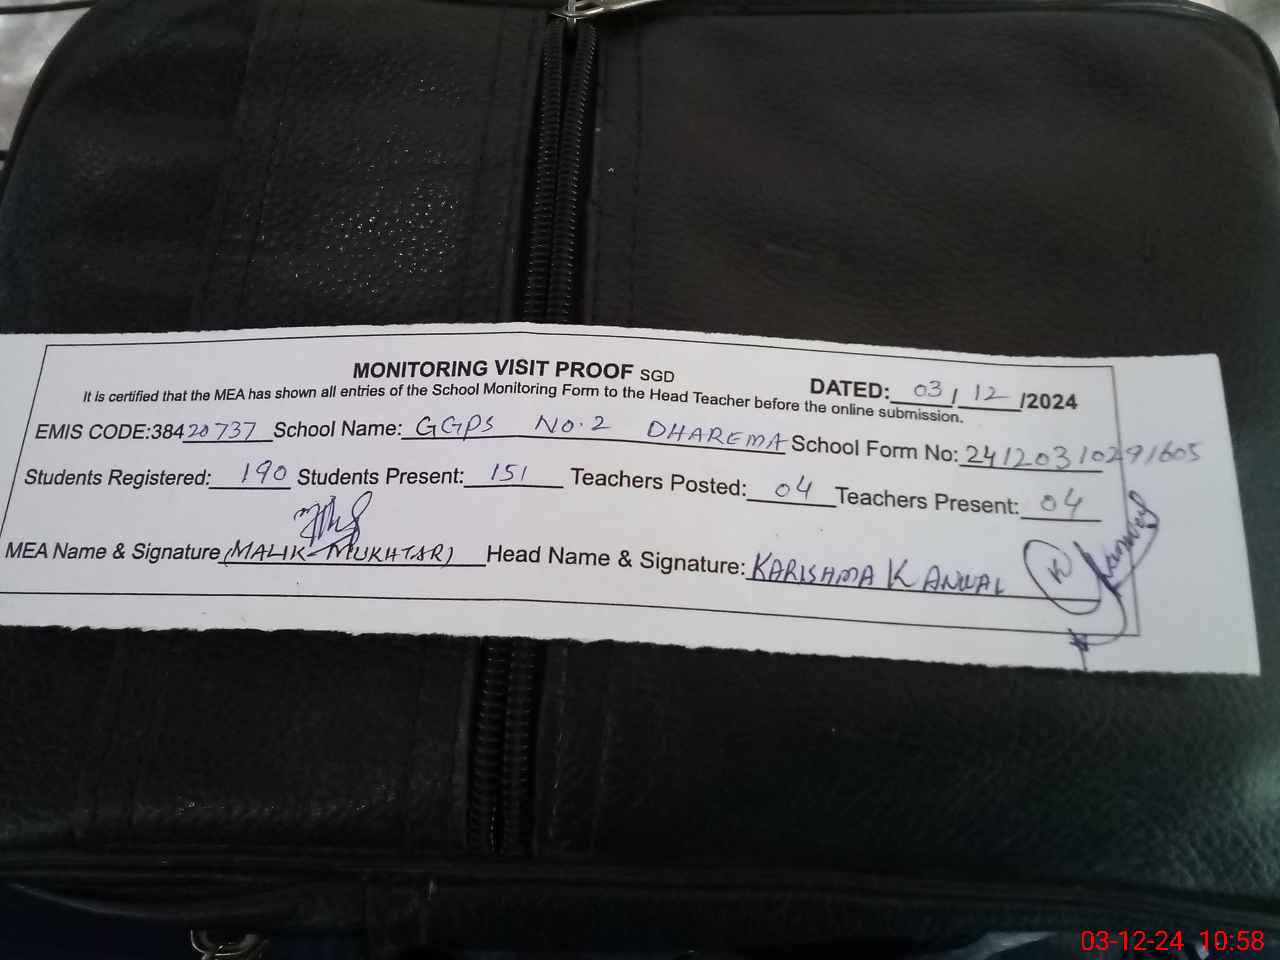 MONITORING VISIT PROOF SGD
DATED: 03/12/2024
It is certified that the MEA has shown all entries of the School Monitoring Form to the Head Teacher before the online submission.
EMIS CODE:38420737 School Name: GGPS No.2 DHAREMA School Form No: 24120310291605
Students Registered: 190 Students Present: 151 Teachers Posted: 04 Teachers Present: 04
MEA Name & Signature (MALIK MUKHTAR) Head Name & Signature: KARISHMA KANWAL
03-12-24 10:58